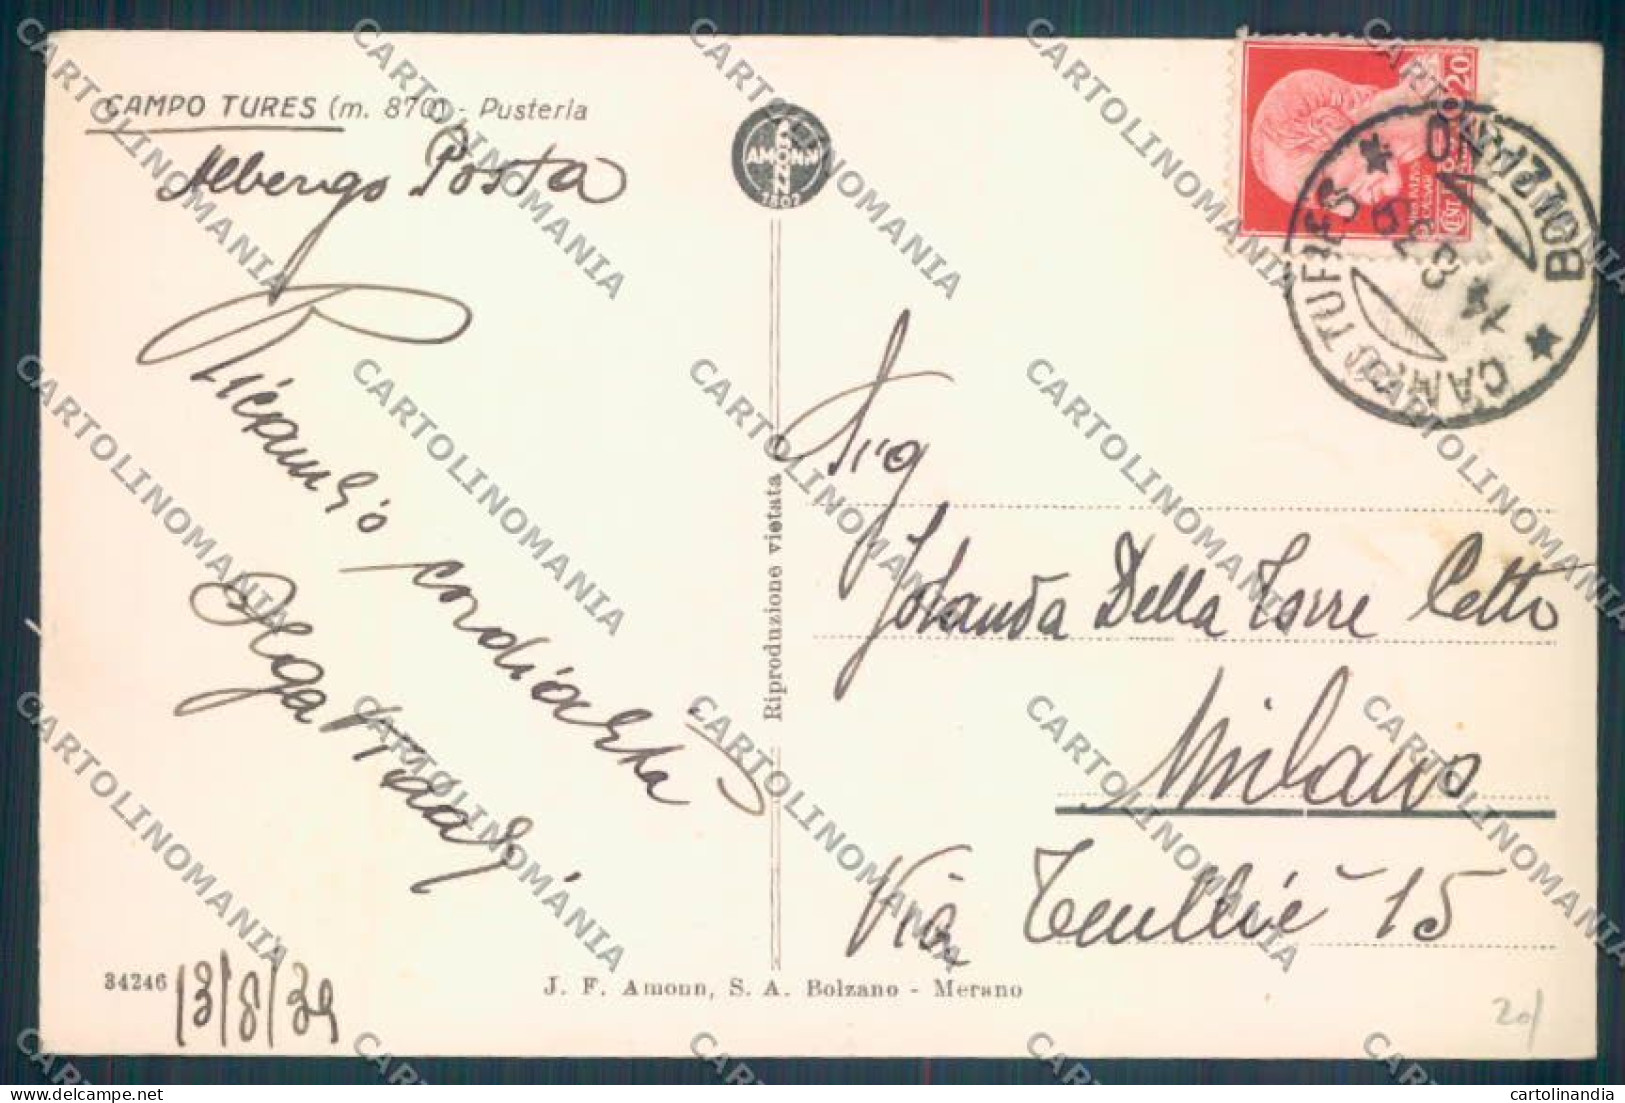 CAMPO TURES (m. 870) - Pusteria
Albergo Posta
Ricambio cordialità
Olga
13/8/39
34246
AMONN
1802
Riproduzione vietata
J. F. Amonn, S. A. Bolzano - Merano
20
CENT
CAMPO TURES
BOLZANO
14 8 39
Sig
Jolanda Della Torre Cetto
Milano
Via 15
20/
CARTOLINOMANIA
cartolinandia